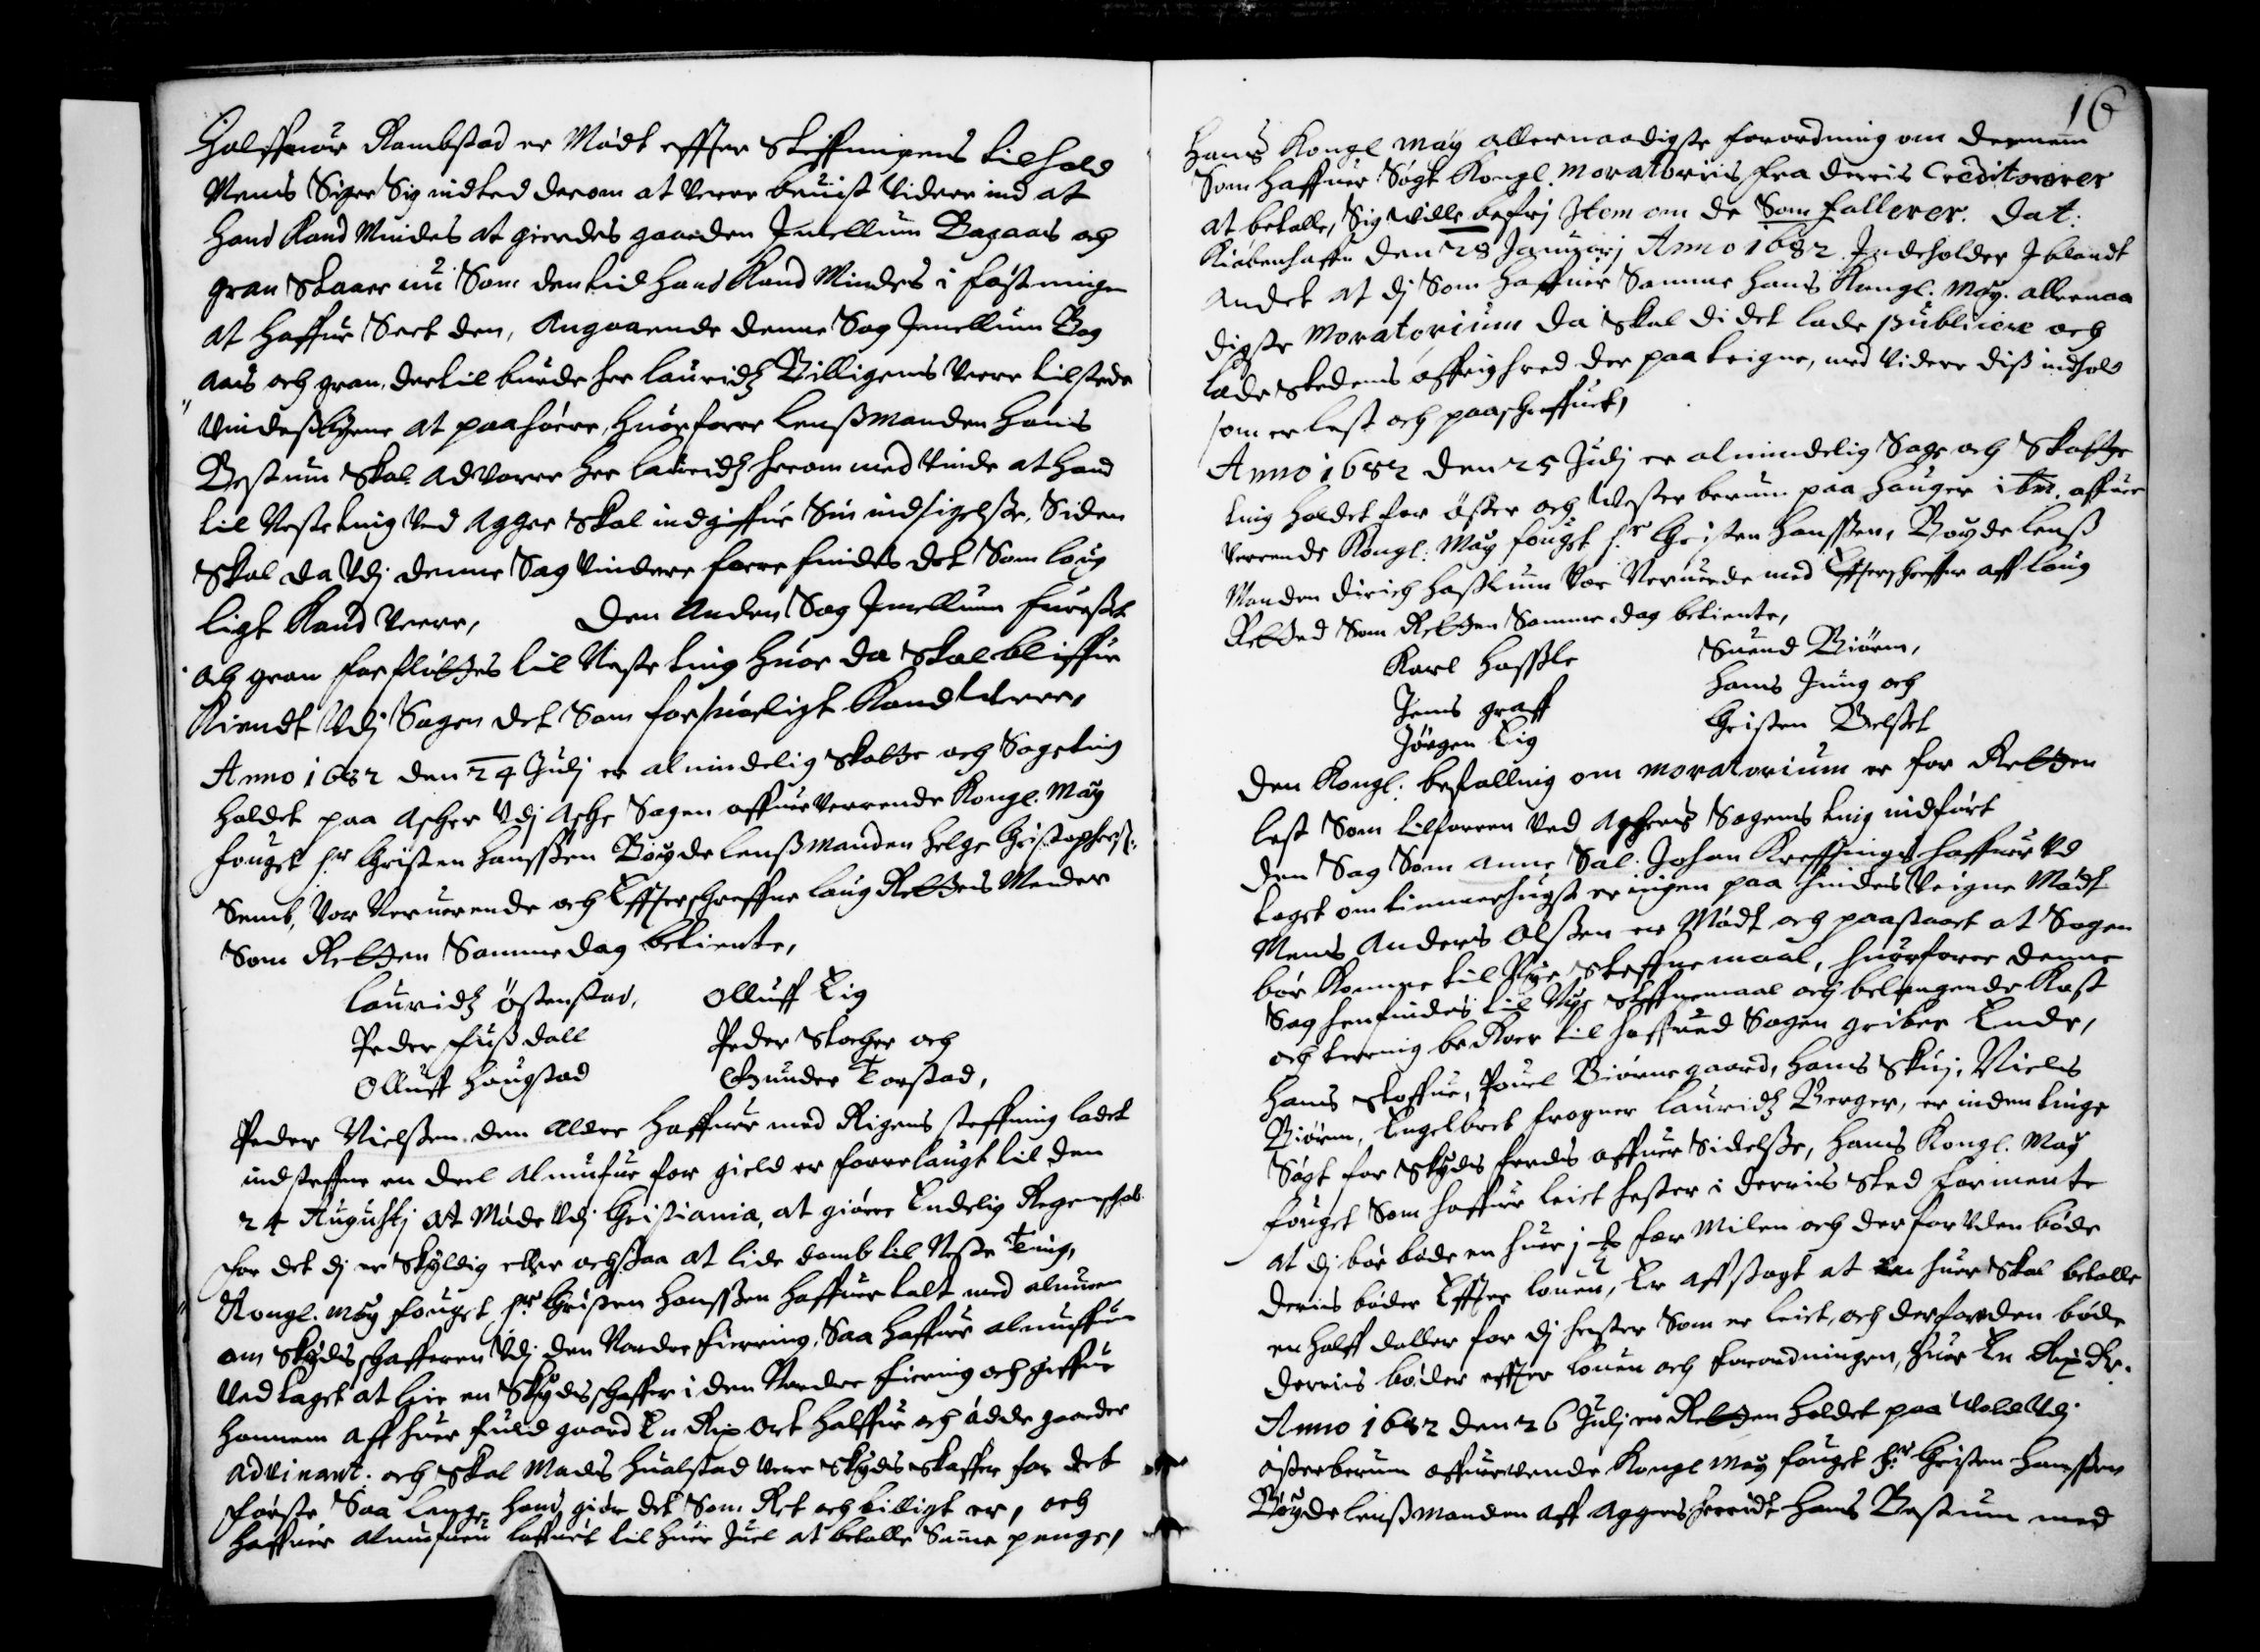 Halffuor Rambstad er Mødt effter Steffningens tilhold
Mens Siger Sig indted derom at verre beuist Videre ind at
hand Kand Mindes at gierdes gaarden Imellum Bagaas och
gran Staaer nu Som den tid hand Kand Mindes i fæstningen
at haffue Seet den, Angaaende denne Sag Imellum Bag
aas och gran, dertil burde her lauridz Billigens Verre tilstede
Vindeßbyrne at paahøere, huorforre lenßmanden hans
Bestum Skal advarre her lauridz herom med Vinde at hand
til Neste ting Ved Agger Skal indgiffue Sin indsigelsße, Siden
Skal da Vdj denne Sag Vindere forre findes det Som loug
ligt Kand Verre, Den Anden Sag Imellum furesset
och gran forfløttes til Neste ting huor da Skal bliffue
Kiendt Vdj Sagen det Som forsuarligt Kand Verre,
Anno 1682 den 24 Julj er almindelig Skatte och Sageting
holdet paa Ascher Vdj Asche Sogen offueruerrende Kongl. May
fouget hr Christen Hansßen Bøygde lenßmanden helge Christophersß:
Semb, Var Neruerende och Effterschreffne laug Rettens Mender
Som Retten Samme dag betiente,
lauridz Østenstad, Olluff Lig
Peder Fußdall Peder Stocher och
Olluff Haugstad Gunder Torstad,
Peder Nielsßen den Aldre haffuer med Rigens steffning ladet
indsteffne en deel Almufue for gield er forrelaugt til den
24 Augustj at Møde Vdj Christiania, at giøre Endelig Regenschab
for det dj er Skyldig eller ochsaa at lide domb til Neste Ting,
Kongl. May fouget hr Christen Hansßen haffuer talt med almuen
om Skydsschafferen Vdj den Nordre fierring, Saa haffuer almuffuen
Vedtaget at leie en Skydsschaffer i den Nordre fierring och giffue
hannem aff huer fuld gaard En Rix ort halffue och ødde gaarder
advinant. och Skal Mads Hualstad Verre Skydsskaffer for det
første Saa lenge hand giør det Som Ret och billigt er, och
haffuer almufuen loffuet til huer Juel at betalle Samme penge,
16
Hans Kongl May allernaadigste forordning om dennem
Som haffuer Søgt Kongl. Moratoriis fra derris Creditorer
at betalle, Sig ville befrj Item om de Som fallerer. Dat:
Kiøbenhaffn den 28 Januarj Anno 1682. Indeholder Iblandt
andet at dj Som haffuer Samme hans Kongl. May. allernaa
digste Moratorium da Skal di det lade publicere och
lade Stedens øffrighed der paa teigne, med Videre diß indhold
som er lest och paaschreffuet,
Anno 1682 den 25 Julj er almindelig Sage och Skatte
ting holdet for øster och Vester berum paa Hauger i tm. offuer
verrende Kongl: May fouget hr Christen Hansßen, Bøygde lenß
Manden Dirich Haslum Var Neruerende med Effterschreffne aff laug
Retted Som Retten Samme dag betiente,
Karl Haßle Suend Biørn,
Jens graff Hans Jung och
Jørgen Lig Christen Belset
Den Kongl: befalling om Moratorium er for Retten
lest Som tilforren Ved Aschers Sogens ting indført
Den Sag Som anne Sal. Johan Krefftings haffuer Vd
taget om timmerhugst er ingen paa hindes Veigne Mødt
Mens Anders Olsßen er Mødt och paastaaet at Sagen
bør Komme til Nye Steffnemaal, huorforre denne
Sag henfindes til Nye Steffnemaal och belangende Kost
och terring beroer til hoffued Sagen griber Ende,
Hans Stoffue, Pouel Biørnegaard, Hans Skuj, Niels
Biørn, Engelbret Frogner lauridz Berger, er inden tinge
Søgt for Skyds ferds offuer Sidelsße, hans Kongl. May
fouget Som haffuer leiet hester i derris Sted formente
at dj bør bøde en huer j for Milen och derforvden bøde
deris bøder Effter louen, Er affsagt at en huer Skal betalle
en halff daller for dj hester Som er leiet, och derforvden bøde
derris bøder effter louen och forordningen, huer En Rix dr.
Anno 1682 den 26 Julj er Retten holdet paa Vold Vdj
østerberum offueruerrende Kongl May fouget hr Christen Hansßen
Bøygde lenßmanden aff Aggers herridt Hans Bestum med